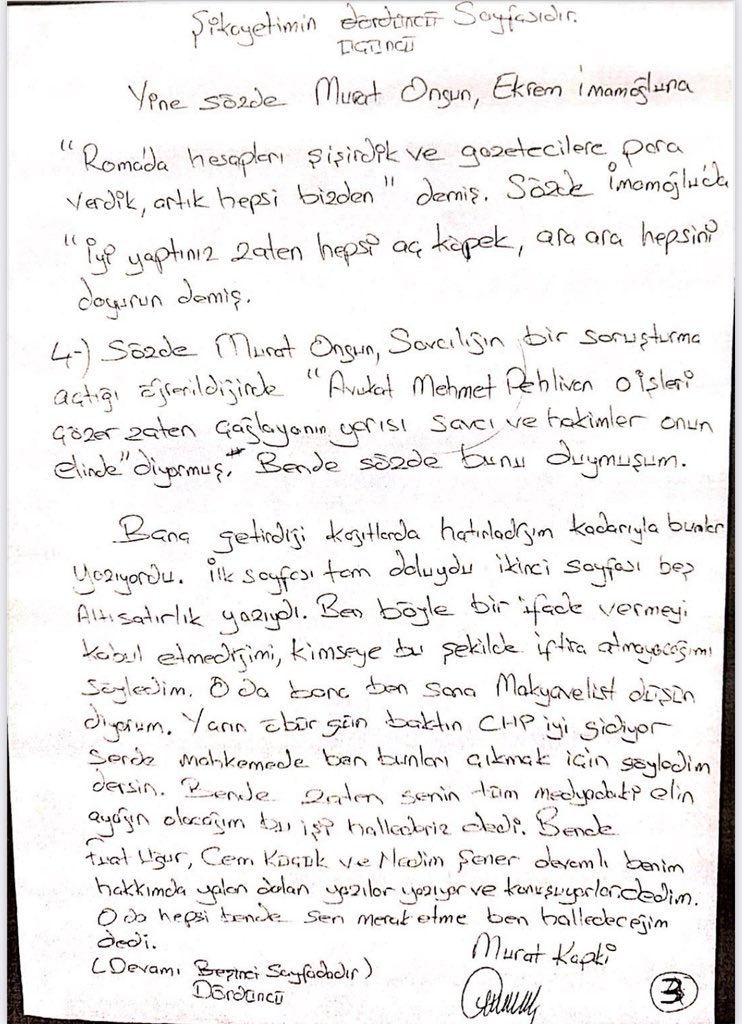 Şikayetimin dördüncü Sayfasıdır.
Üçüncü
Yine sözde Murat Ongun, Ekrem İmamoğluna
"Roma'da hesapları şişirdik ve gazetecilere para
verdik, artık hepsi bizden" demiş. Sözde İmamoğlu'da
"İyi yaptınız zaten hepsi aç köpek, ara ara hepsini
doyurun demiş.
4-) Sözde Murat Ongun, Savcılığın bir soruşturma
açtığı öğrenildiğinde "Avukat Mehmet Pehlivan o işleri
çözer zaten Çağlayanın yarısı savcı ve hakimler onun
elinde" diyormuş. Bende sözde bunu duymuşum.
Bana getirdiği kağıtlarda hatırladığım kadarıyla bunlar
yazıyordu. İlk sayfası tam doluydu ikinci sayfası beş
Altı satırlık yazıydı. Ben böyle bir ifade vermeyi
kabul etmediğimi, kimseye bu şekilde iftira atmayacağımı
söyledim. O da bana ben sana Makyavelist düşün
diyorum. Yarın öbür gün baktın CHP iyi gidiyor
Sende mahkemede ben bunları çıkmak için söyledim
dersin. Bende zaten senin tüm medyadaki elin
ayağın olacağım bu işi hallederiz dedi. Bende
Fuat Uğur, Cem Küçük ve Nedim Şener devamlı benim
hakkımda yalan dolan yazılar yazıyor ve konuşuyorlar dedim.
O da hepsi bende sen merak etme ben halledeceğim
dedi.
Murat Kapki
(Devamı Beşinci Sayfadadır)
Dördüncü
3